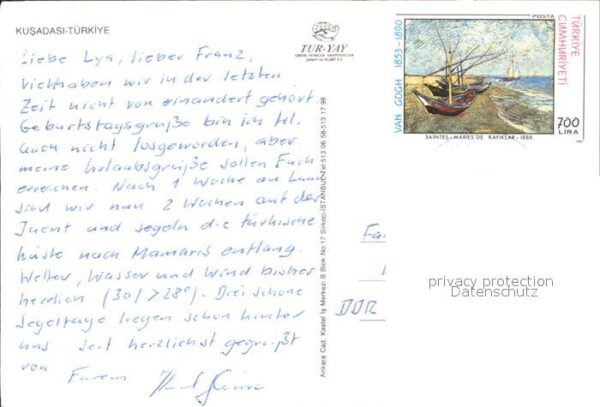 KUŞADASI-TÜRKİYE
Liebe Lya, lieber Franz,
viel haben wir in der letzten
Zeit nicht von einander gehört
Geburtstagsgrüße bin ich tel.
auch nicht losgeworden, aber
meine Urlaubsgrüße sollen Euch
erreichen. Nach 1 Woche an Land
sind wir nun 2 Wochen auf der
Jacht und segeln die türkische
Küste nach Mamaris entlang.
Wetter, Wasser und Wind bisher
herrlich (30/>28°). Drei schöne
Segeltage liegen schon hinter
uns. Seit herzlichst gegrüßt
von Eurem
TUR-YAY
Ankara Cad. Kastel İş Merkezi B Blok No 17 Sirkeci-İSTANBUL Tel: 513 06 58-513 17 98
POSTA
VAN GOGH 1853-1890
TÜRKİYE CUMHURİYETİ
SAINTES-MARIES DE KAYIKLAR-1888
700
LİRA
Fa
DDR
privacy protection
Datenschutz